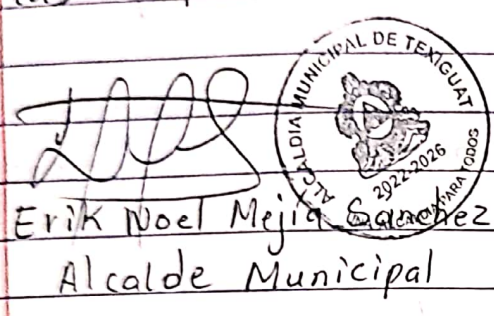 ALCALDIA MUNICIPAL DE TEXIGUAT
2022-2026
PARA TODOS
Erik Noel Mejia Sanchez
Alcalde Municipal